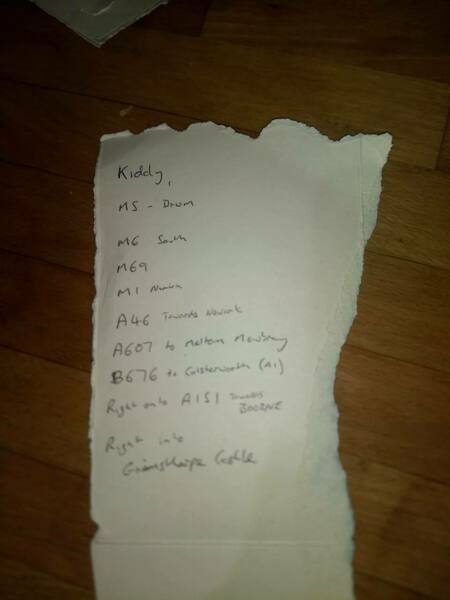 Kiddy,
M5 - Drum
M6 South
M69
M1 North
A46 Towards Newark
A607 to Meltom Mowbray
B676 to Colsterworth (A1)
Right onto A151 Towards
BOURNE
Right into
Grimsthorpe Castle